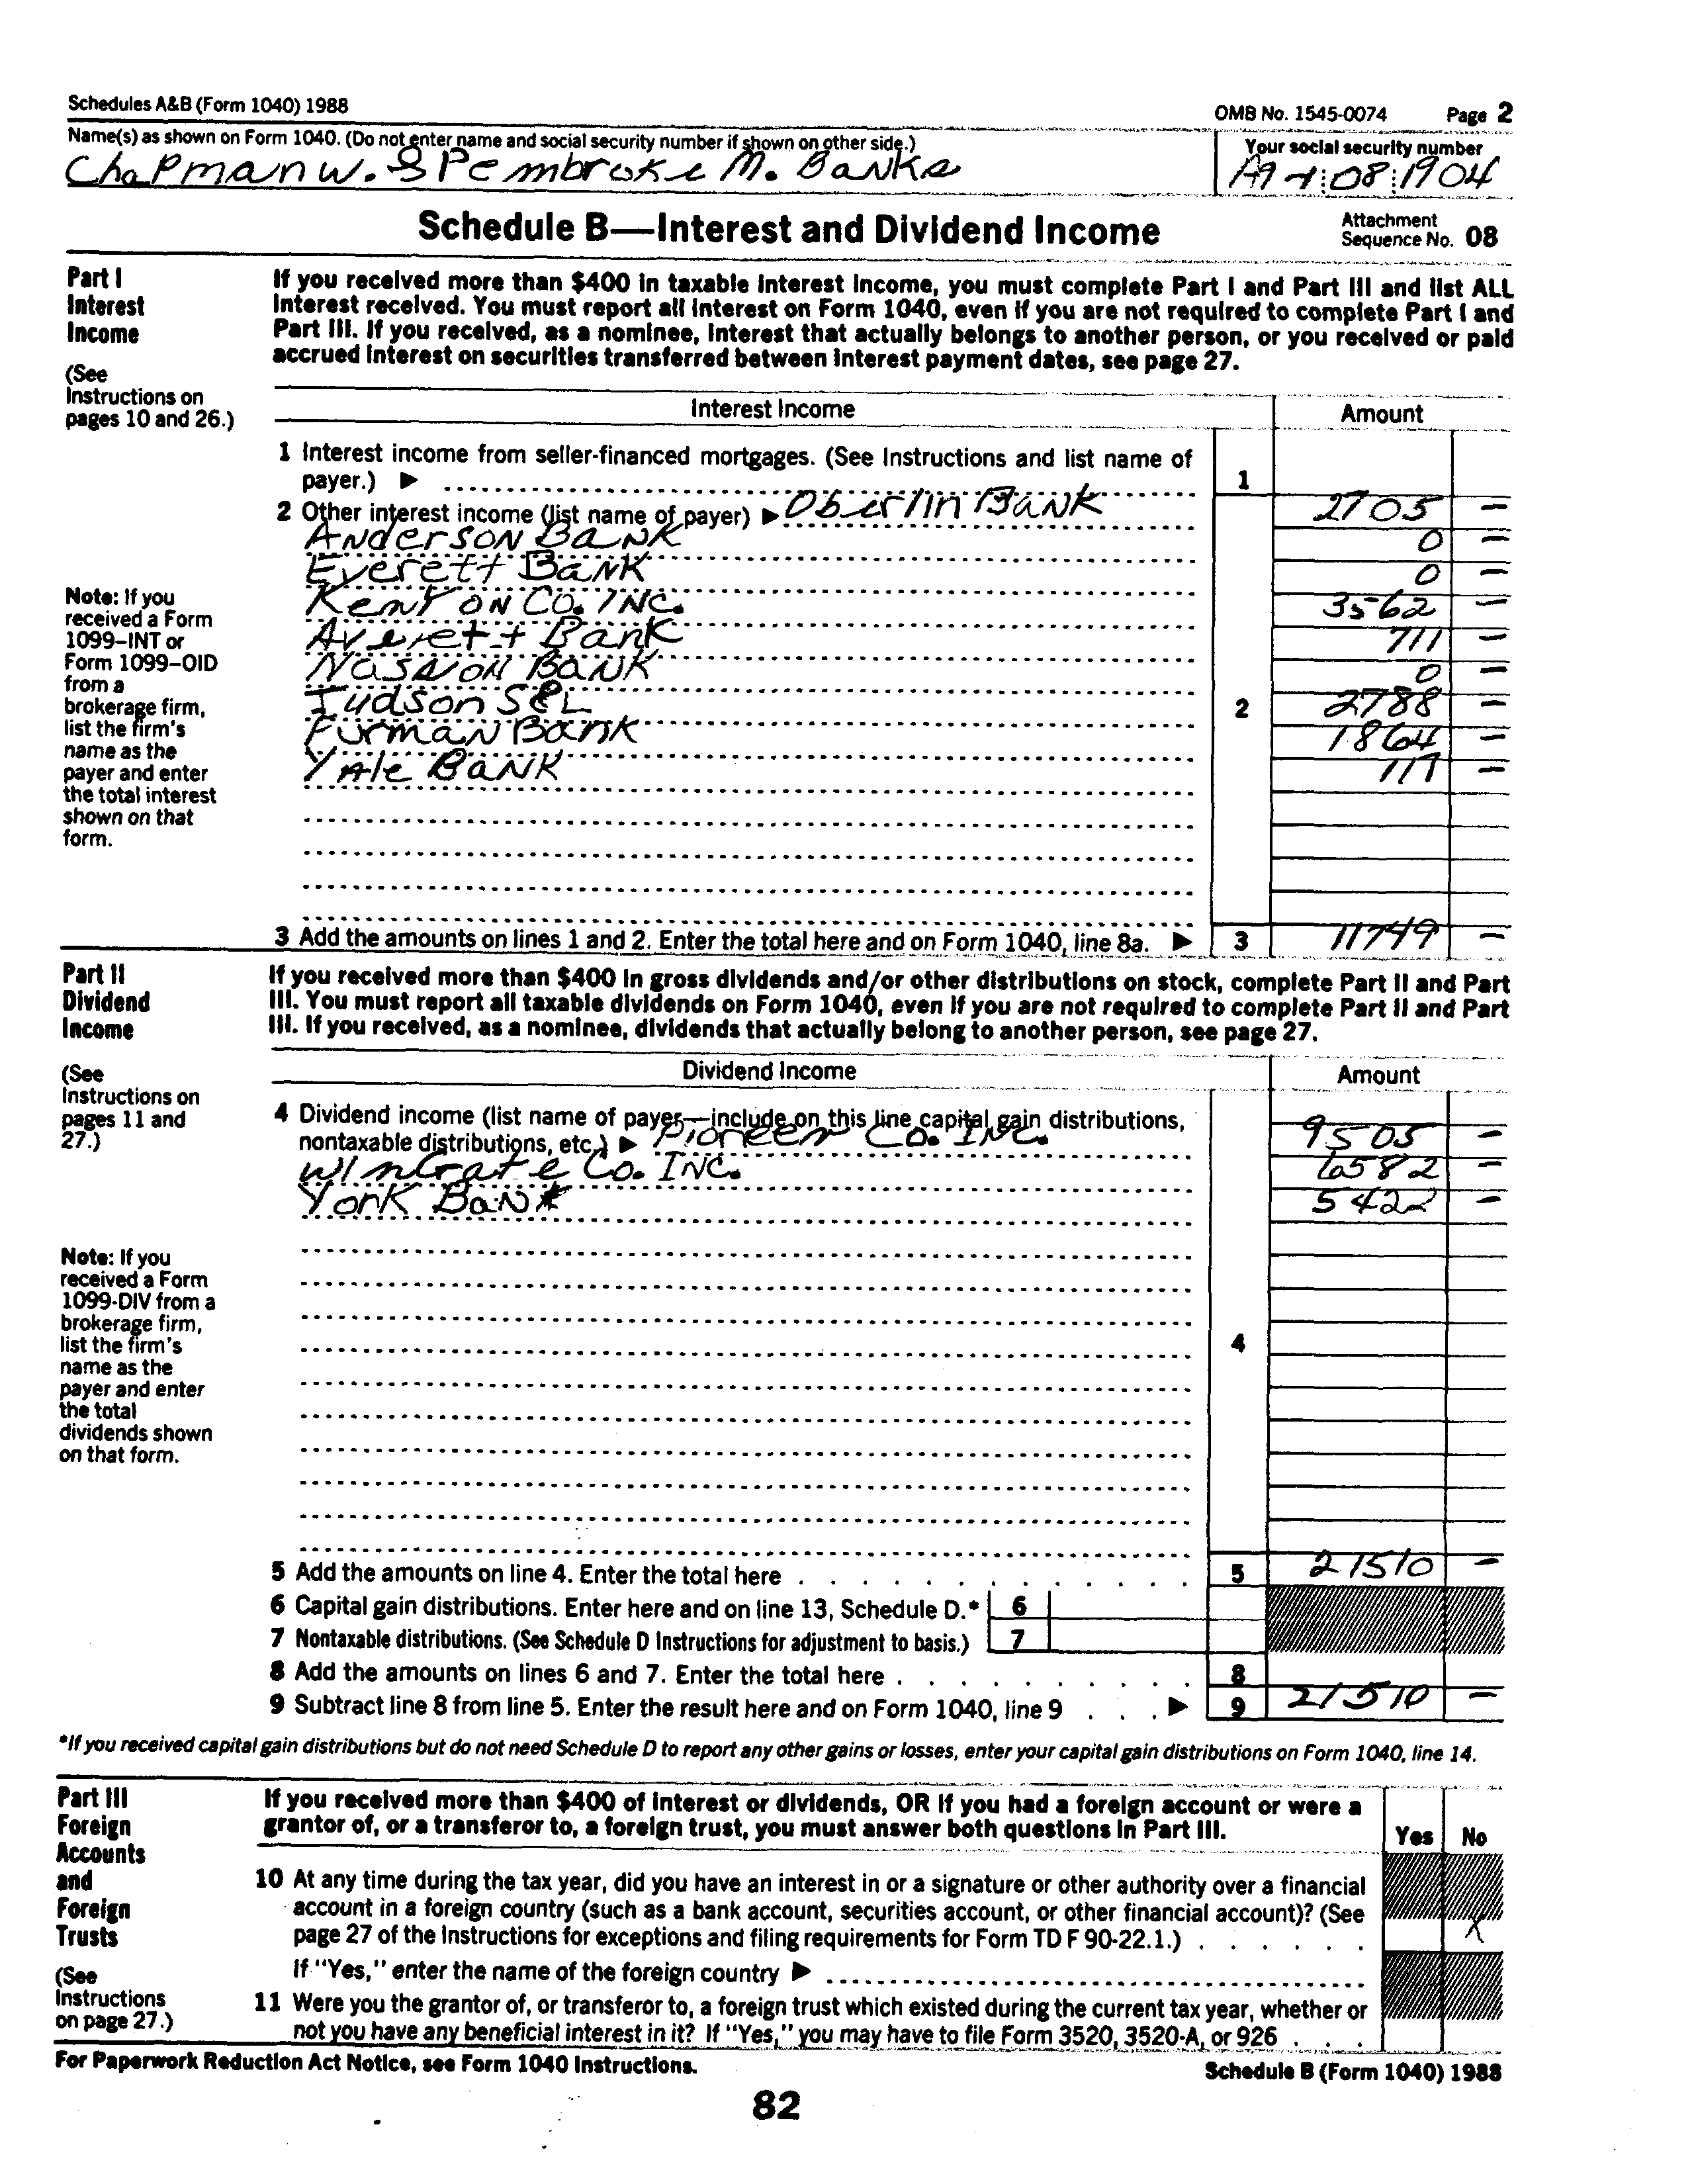 Schedules A&B (Form 1040) 1988
OMB No. 1545-0074 Page 2
Name(s) as shown on Form 1040. (Do not enter name and social security number if shown on other side.)
Your social security number
Chapman W. & Pembroke M. Banks
08 1904
Schedule B—Interest and Dividend Income
Attachment
Sequence No. 08
Part I
Interest
Income
(See
Instructions on
pages 10 and 26.)
If you received more than $400 in taxable interest income, you must complete Part I and Part III and list ALL
interest received. You must report all interest on Form 1040, even if you are not required to complete Part I and
Part III. If you received, as a nominee, interest that actually belongs to another person, or you received or paid
accrued interest on securities transferred between interest payment dates, see page 27.
Interest Income Amount
1 Interest income from seller-financed mortgages. (See Instructions and list name of
payer.) ▶ 1
2 Other interest income (list name of payer) ▶ Oberlin Bank 2705 —
Anderson Bank 0 —
Everett Bank 0 —
Kenyon Co. INC. 3562 —
Averett Bank 711 —
Bank 0 —
Judson S&L 2 2788 —
Furman Bank 1864 —
Yale Bank —
Note: If you
received a Form
1099–INT or
Form 1099–OID
from a
brokerage firm,
list the firm's
name as the
payer and enter
the total interest
shown on that
form.
3 Add the amounts on lines 1 and 2. Enter the total here and on Form 1040, line 8a. ▶ 3 11749 —
Part II
Dividend
Income
(See
Instructions on
pages 11 and
27.)
If you received more than $400 in gross dividends and/or other distributions on stock, complete Part II and Part
III. You must report all taxable dividends on Form 1040, even if you are not required to complete Part II and Part
III. If you received, as a nominee, dividends that actually belong to another person, see page 27.
Dividend Income Amount
4 Dividend income (list name of payer—include on this line capital gain distributions,
nontaxable distributions, etc.) ▶ Pioneer Co. INC. 9505 —
Wingate Co. INC. 6582 —
York Bank 5422 —
Note: If you
received a Form
1099-DIV from a
brokerage firm,
list the firm's
name as the
payer and enter
the total
dividends shown
on that form.
4
5 Add the amounts on line 4. Enter the total here 5 21510 —
6 Capital gain distributions. Enter here and on line 13, Schedule D.* 6
7 Nontaxable distributions. (See Schedule D Instructions for adjustment to basis.) 7
8 Add the amounts on lines 6 and 7. Enter the total here 8
9 Subtract line 8 from line 5. Enter the result here and on Form 1040, line 9 ▶ 9 21510 —
*If you received capital gain distributions but do not need Schedule D to report any other gains or losses, enter your capital gain distributions on Form 1040, line 14.
Part III
Foreign
Accounts
and
Foreign
Trusts
(See
Instructions
on page 27.)
If you received more than $400 of interest or dividends, OR if you had a foreign account or were a
grantor of, or a transferor to, a foreign trust, you must answer both questions in Part III.
Yes No
10 At any time during the tax year, did you have an interest in or a signature or other authority over a financial
account in a foreign country (such as a bank account, securities account, or other financial account)? (See
page 27 of the Instructions for exceptions and filing requirements for Form TD F 90-22.1.) X
If "Yes," enter the name of the foreign country ▶
11 Were you the grantor of, or transferor to, a foreign trust which existed during the current tax year, whether or
not you have any beneficial interest in it? If "Yes," you may have to file Form 3520, 3520-A, or 926
For Paperwork Reduction Act Notice, see Form 1040 Instructions.
Schedule B (Form 1040) 1988
82